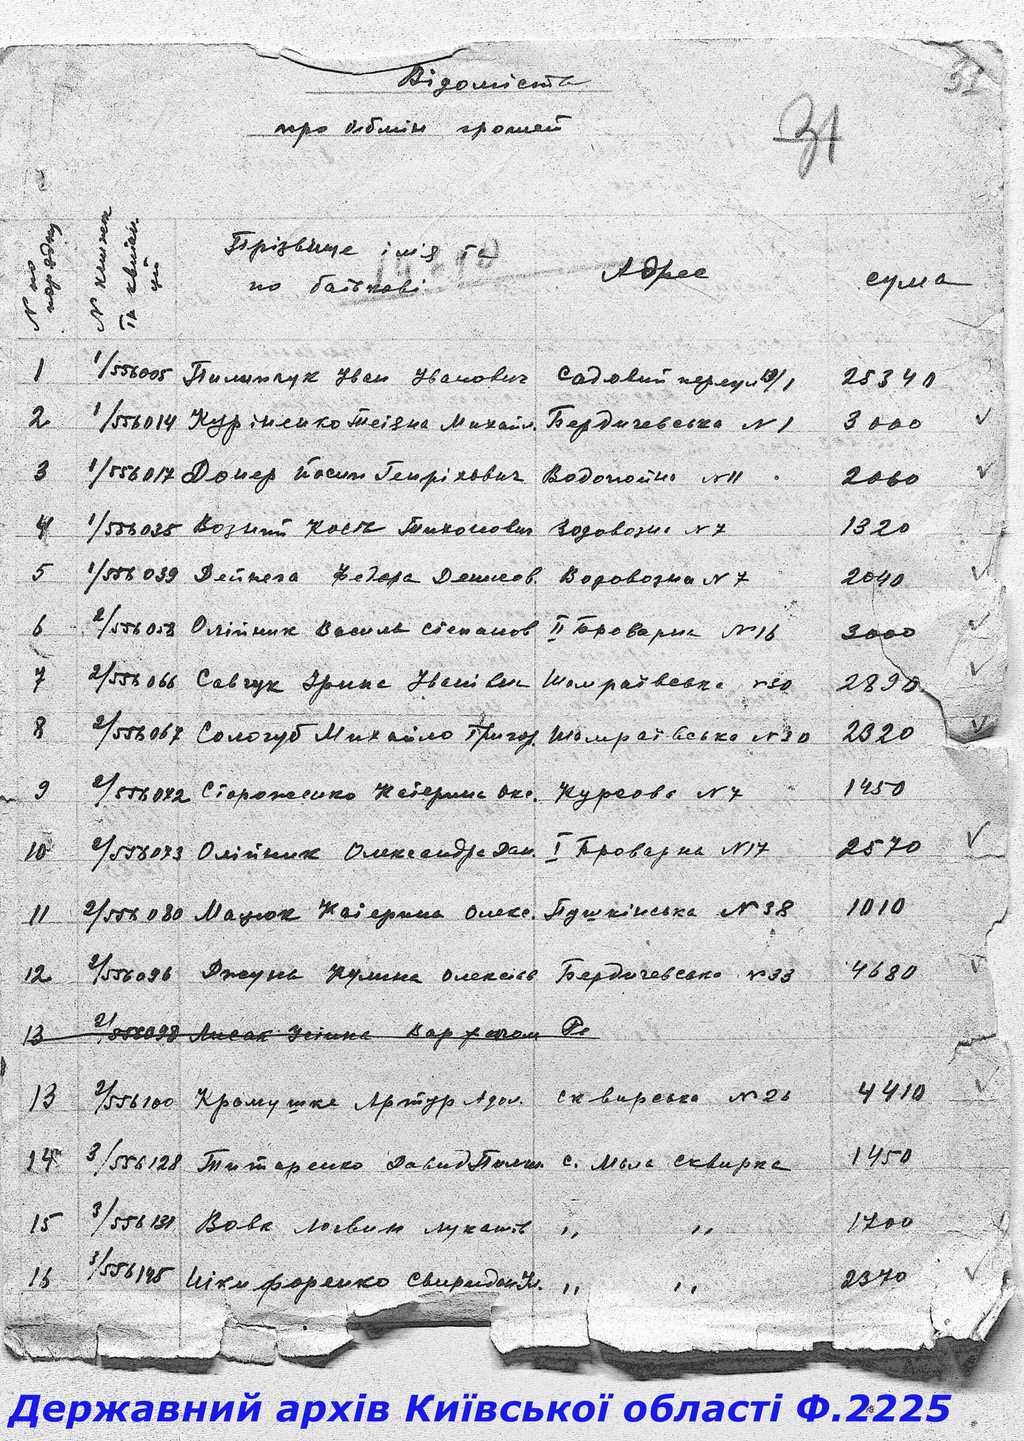 Відомість
про обмін грошей
31
31
N по порядку
N книжек та квитан. ций
Прізвище імʼя та по батькові
Адрес
сума
1 1/556005 Пилипчук Іван Іванович Садовий переул. 1 25340
2 1/556014 Куріненко Тетяна Михайл. Бердичевська N 1 3000
3 1/556017 Донер Йосип Генріхович Водопойна N 11 2060
4 1/556035 Возний Кость Тихонович Водовозна N 7 1320
5 1/556039 Дейнега Федора Денисов. Водовозна N 7 2040
6 2/556058 Олійник Василь Степанов II Броварна N 16 3000
7 2/556066 Савчук Ірина Іванівна Шамраївська N 30 2890
8 2/556067 Сологуб Михайло Григор. Шамраївська N 30 2320
9 2/556072 Стороженко Катерина Окс. Курсова N 7 1450
10 2/556073 Олійник Олександра Дан. I Броварна N 17 2570
11 2/556080 Мацюк Катерина Олекс. Пушкінська N 38 1010
12 2/556096 Джунь Кулина Олексіев Бердичевська N 33 4680
13 2/556098 Лисак Устина
13 2/556100 Крамушка Артур Адол. Сквирська N 26 4410
14 3/556128 Титаренко Давид с. Мала Сквирка 1450
15 3/556131 Вовк Логвин Лукашів „ „ 1700
16 3/556145 Нікифоренко Свиридон „ „ 2370
Державний архів Київської області Ф.2225